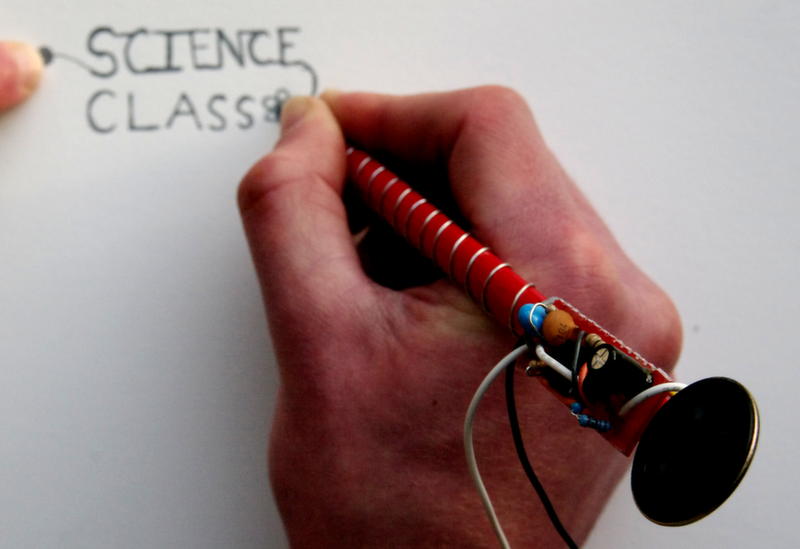 SCIENCE
CLASS